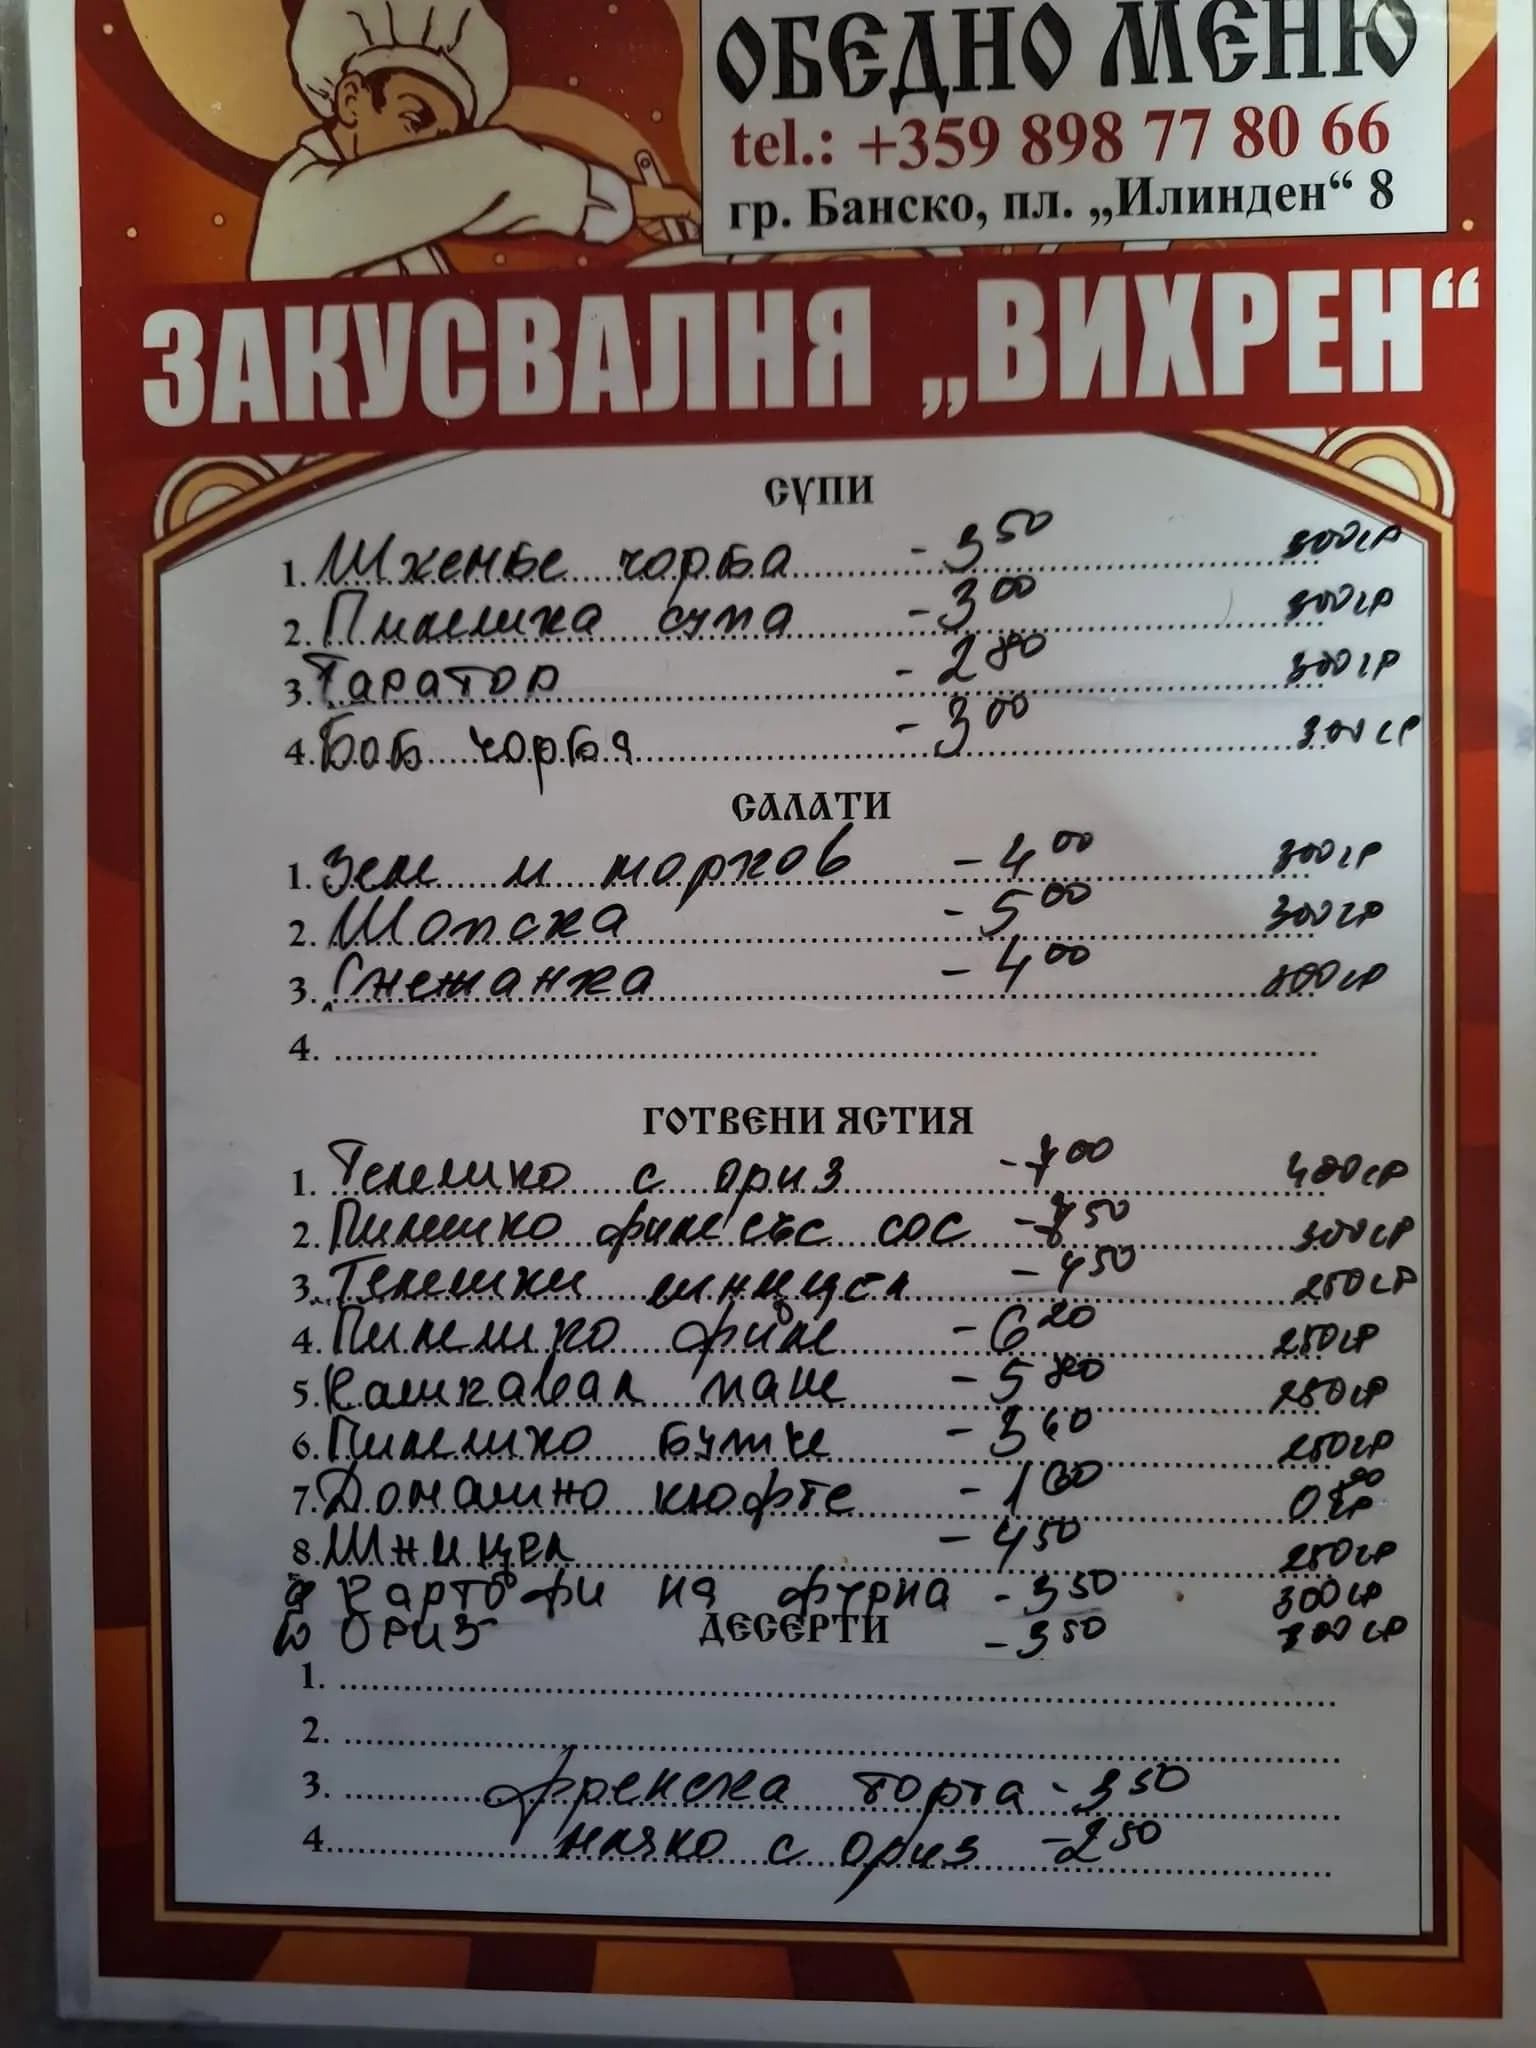 ОБЕДНО МЕНЮ
tel.: +359 898 77 80 66
гр. Банско, пл. „Илинден“ 8
ЗАКУСВАЛНЯ „ВИХРЕН“
СУПИ
1. Шкембе чорба - 3 50 300 гр
2. Пилешка супа - 3 00 300 гр
3. Таратор - 2 80 300 гр
4. Боб чорба - 3 00 300 гр
САЛАТИ
1. Зеле и морков - 4 00 300 гр
2. Шопска - 5 00 300 гр
3. Снежанка - 4 00 300 гр
4.
ГОТВЕНИ ЯСТИЯ
1. Телешко с ориз - 7 00 400 гр
2. Пилешко филе със сос - 7 50 300 гр
3. Телешки шницел - 4 50 250 гр
4. Пилешко филе - 6 20 250 гр
5. Кашкавал пане - 5 80 250 гр
6. Пилешко бутче - 3 60 250 гр
7. Домашно кюфте - 1 60
8. Шницел - 4 50 250 гр
9 Картофи на фурна - 3 50 300 гр
10 Ориз - 3 50 300 гр
ДЕСЕРТИ
1.
2.
3. Френска торта - 3 50
4. мляко с ориз - 2 50